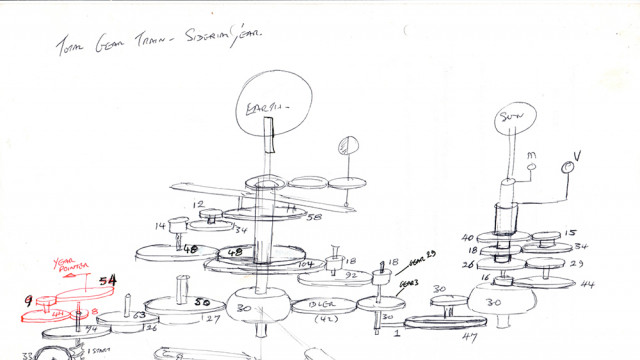 TOTAL GEAR TRAIN - SIDERIAL YEAR.
EARTH
SUN
M
V
12
58
34
14
48
48
104
18
92
18
GEAR 29
GEAR 3
40
15
18
34
26
29
16
44
YEAR
POINTER
54
9
8
63
26
50
27
30
IDLER
(42)
30
1
30
47
30
1 START
33